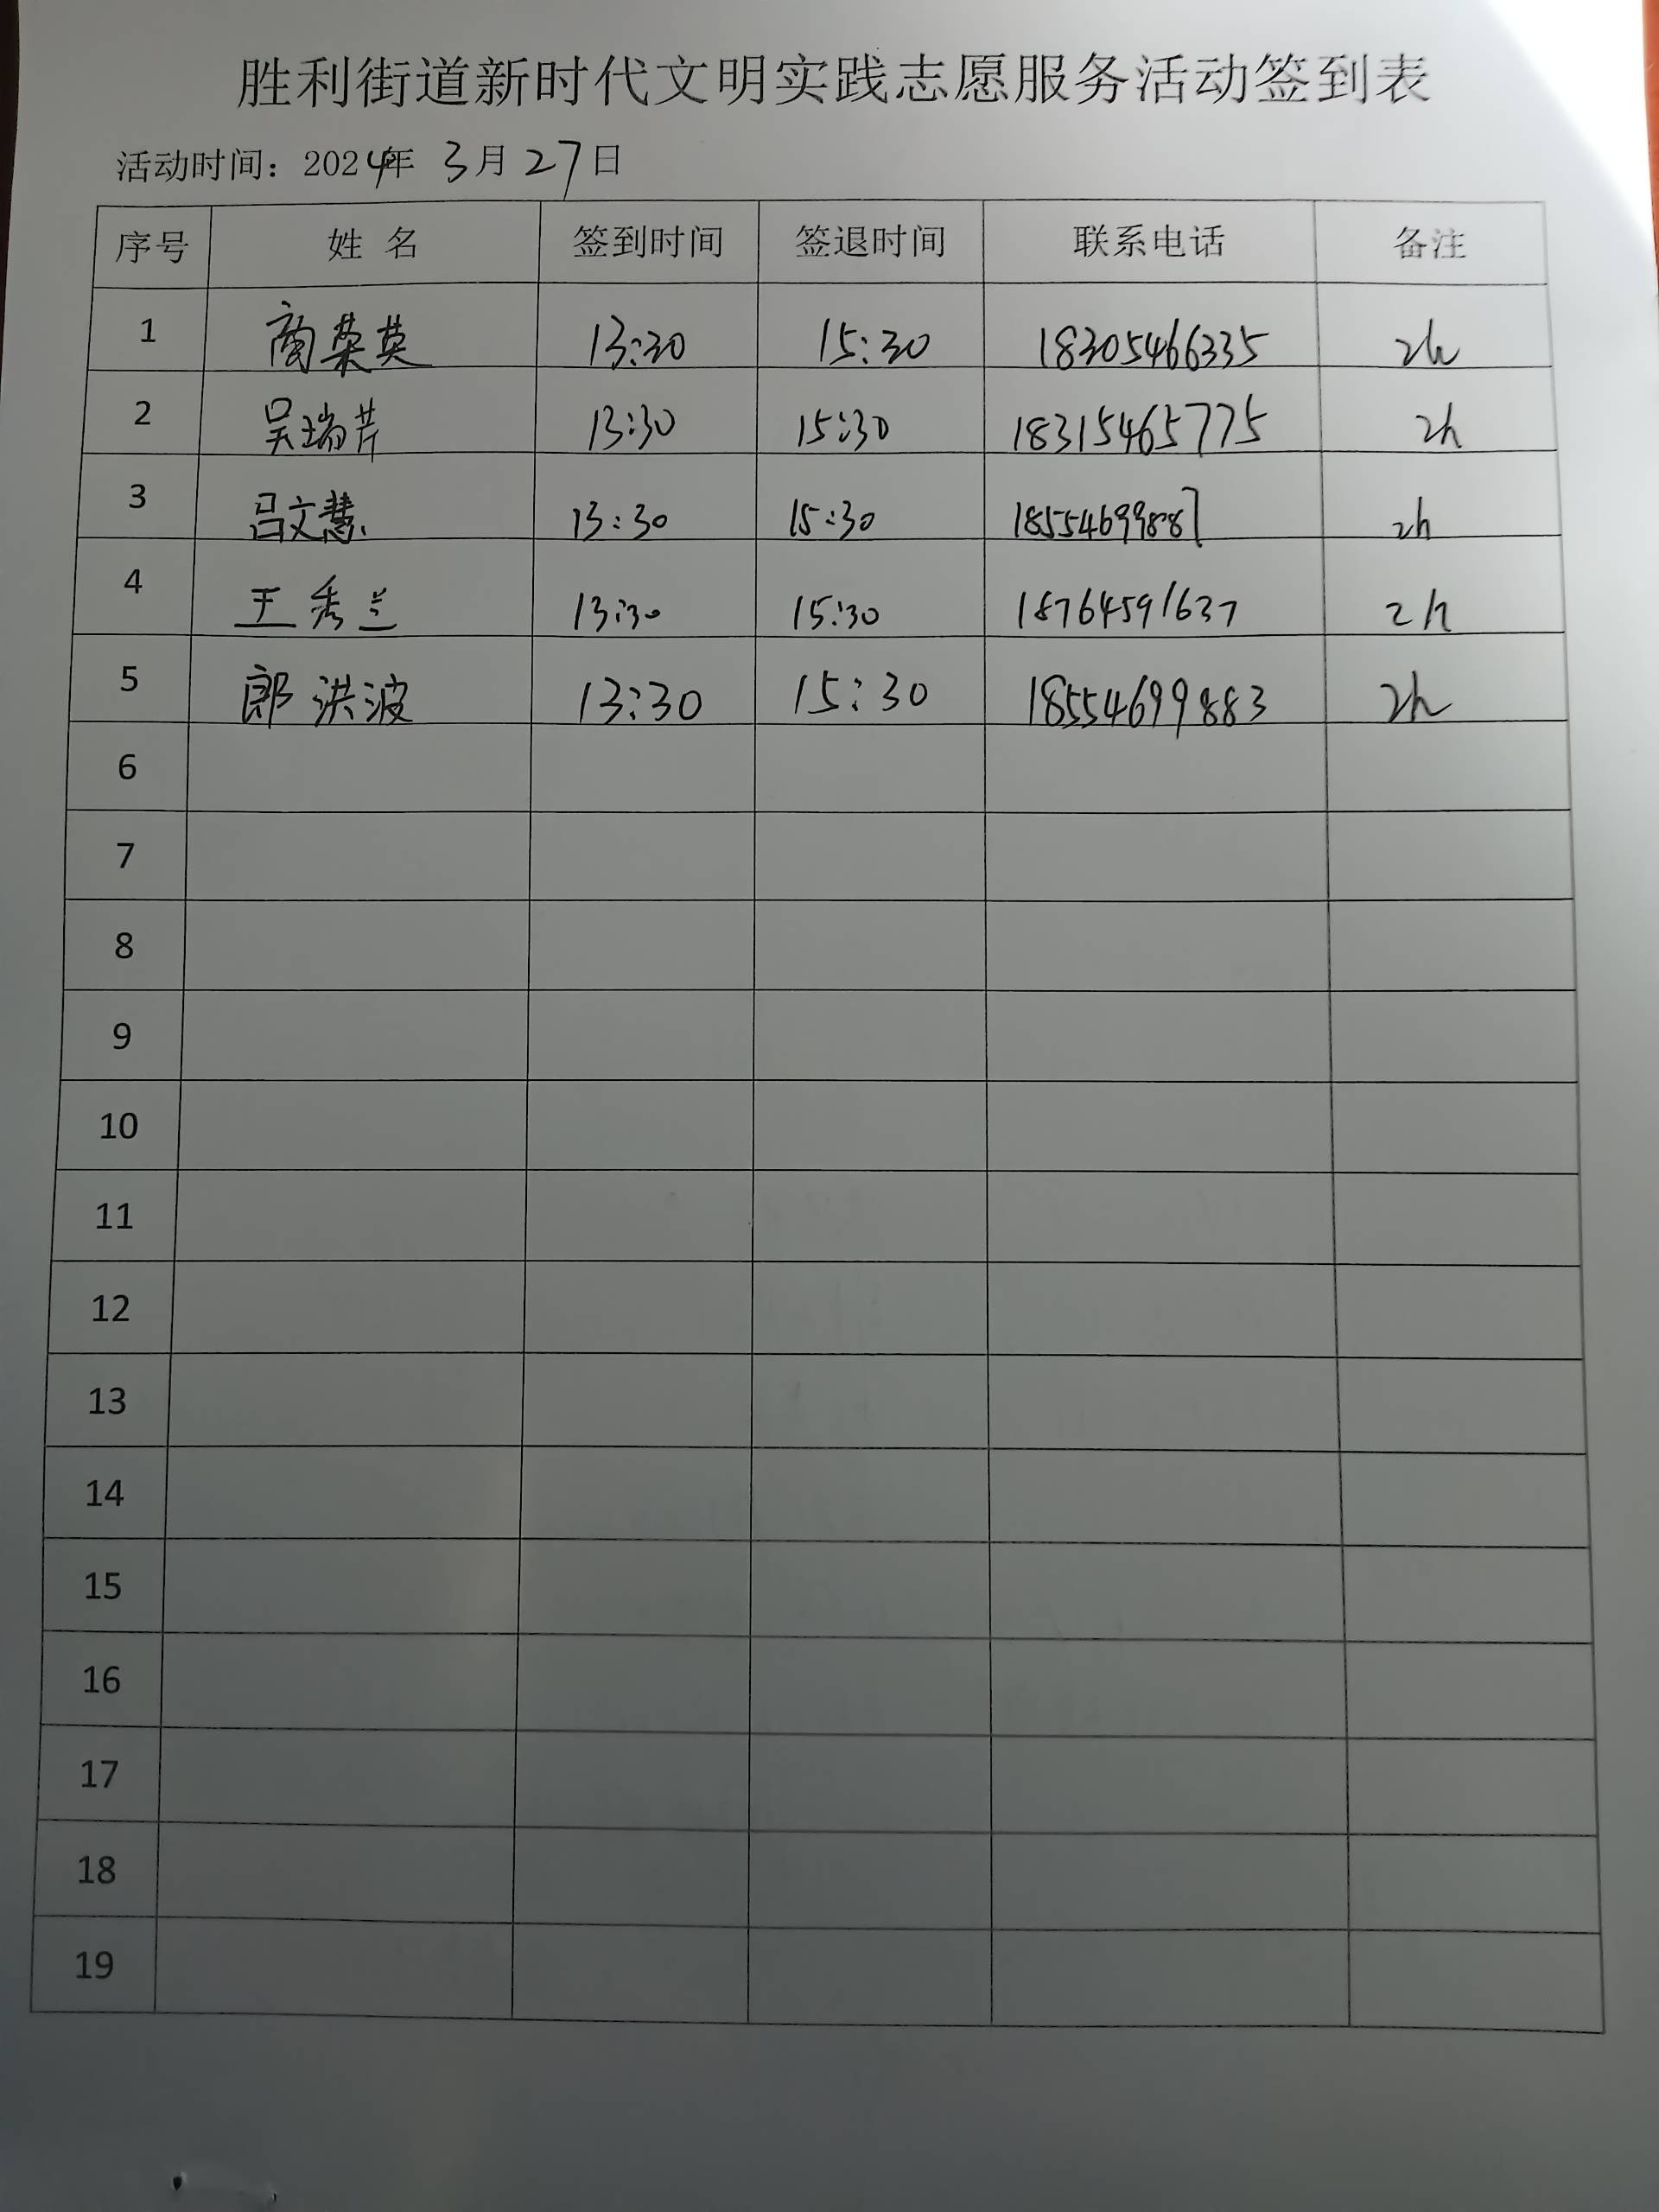 胜利街道新时代文明实践志愿服务活动签到表
活动时间：2024年 3月27日
序号 姓 名 签到时间 签退时间 联系电话 备注
1 商荣英 13:30 15:30 18305466335 2h
2 吴瑞芹 13:30 15:30 18315465775 2h
3 吕文慧 13:30 15:30 18554699887 2h
4 王秀兰 13:30 15:30 18764591637 2h
5 郎洪波 13:30 15:30 18554699883 2h
6
7
8
9
10
11
12
13
14
15
16
17
18
19